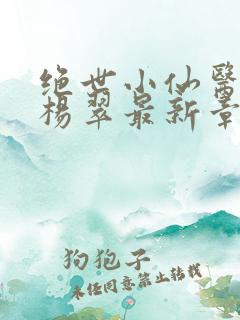 绝世小仙醫
楊翠最新章
狗狍子
未经同意禁止转载